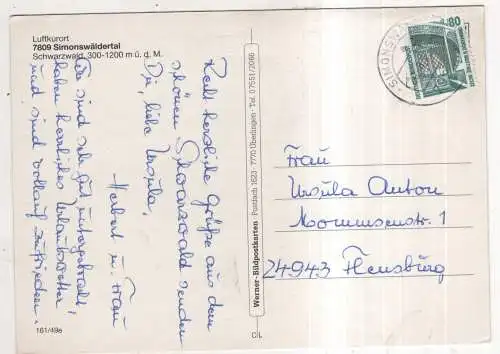 Luftkurort
7809 Simonswäldertal
Schwarzwald, 300-1200 m ü. d. M.
Recht herzliche Grüße aus dem
schönen Schwarzwald senden
Dir, liebe Ursula,
Herbert u. Frau
Wir sind sehr gut untergebracht
haben herrliches Urlaubswetter!
und sind vollauf zufrieden.
161/49e
Werner-Bildpostkarten · Postfach 1623 · 7770 Überlingen · Tel. 07551/2066
C/L
SIMONSW
80
Frau
Ursula Anton
Mommsenstr. 1
24943 Flensburg